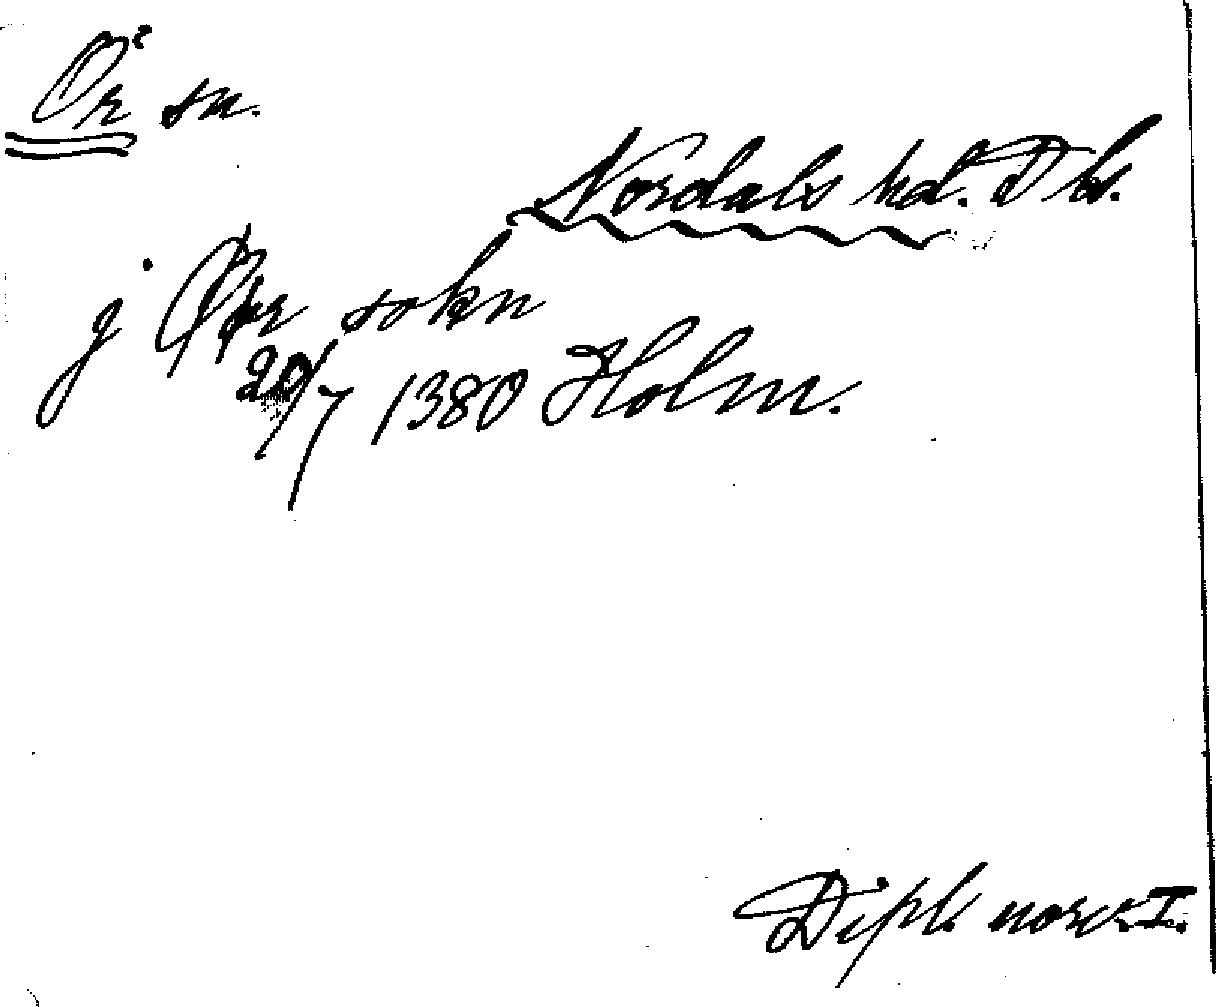 Ör sn.
Nordals hd. Dls.
j sokn
20/7 1380 Holm.
Dipl. norv. I.